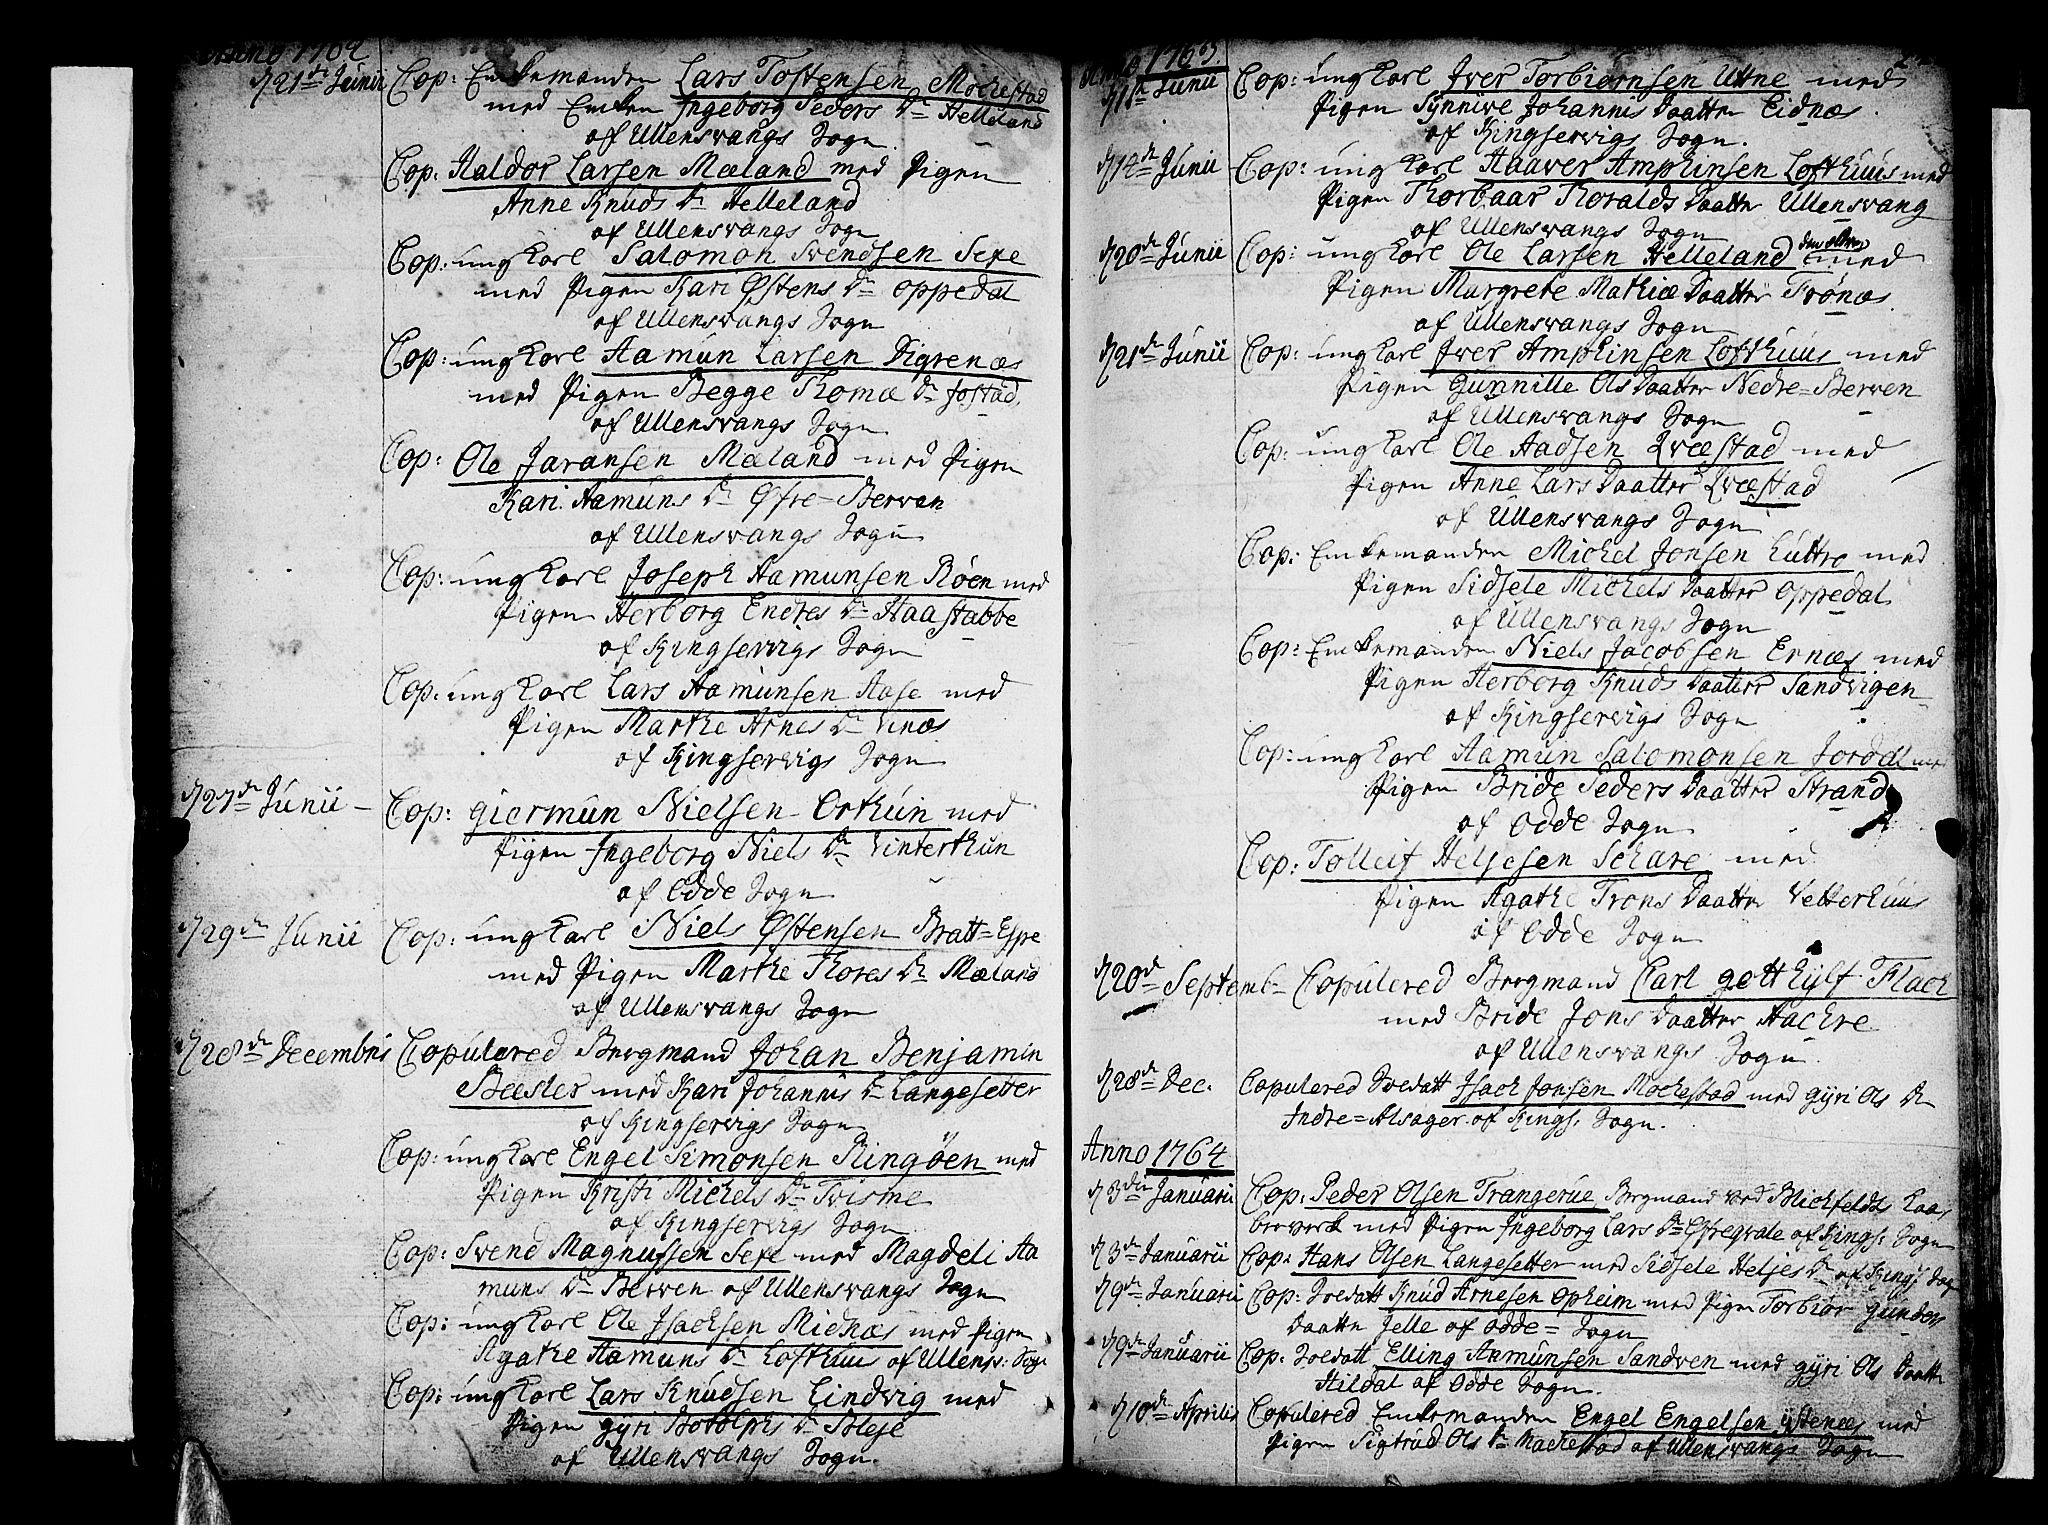 Anno 1762
d 21de Junii Cop: Enkemanden Lars Tostensen Mochestad
med Enken Ingeborg Peders Dr Helleland
af Ullensvangs Sogn
Cop: Haldor Larsen Mæland med Pigen
Anne Knuds Dr Helleland
af Ullensvangs Sogn
Cop: ung Karl Salomon Svendsen Sexe
med Pigen Kari Østens Dr Oppedal
af Ullensvangs Sogn
Cop: ung Karl Aamun Larsen Digrenæs
med Pigen Begge Thomæ Dr Jostad
af Ullensvangs Sogn
Cop: Ole Jaransen Mæland med Pigen
Kari Aamuns Dr Øfre-Berven
af Ullensvangs Sogn
Cop: ung Karl Joseph Aamunsen Røen med
Pigen Herborg Endres Dr Haastabbe
af Kingservigs Sogn
Cop: ung Karl Lars Aamunsen Aase med
Pigen Marthe Arnes Dr Vinæs
af Kingservigs Sogn
d 27de Junii - Cop: Giermun Nielsen Orthun med
Pigen Ingeborg Niels Dr Vinterthun
af Odde Sogn
d 29de Junii Cop: ung Karl Niels Østensen Bratt=Espe
med Pigen Marthe Thores Dr Mæland
af Ullensvangs Sogn
d 28de Decembris Copulered Bergmand Johan Benjamin
Bæsler med Kari Johannis Dr Langesetter
af Kingservigs Sogn
Cop: ung Karl Engel Simonsen Ringøen med
Pigen Kristi Michels Dr Trisme
af Kingservigs Sogn
Cop: Svend Magnussen Sexe med Magdeli Aa
muns Dr Berven af Ullensvangs Sogn
Cop: ung Karl Ole Isachsen Midnæs med Pigen
Agathe Aamuns Dr Lofthuus af Ullens: Sogn
Cop: ung Karl Lars Knudsen Lindvig med
Pigen Gyri Botolphs Dr Bleje
af Ullensvangs Sogn.
Anno 1763
d 11te Junii Cop: ung Karl Iver Torbiørnsen Uttne med
Pigen Synnive Johannis Daatter Eidnæs
af Kingservigs Sogn.
d 14de Junii Cop: ung Karl Haaver Amphinsen Lofthuus med
Pigen Thorbaar Thoralds Daatter Ullensvang
af Ullensvangs Sogn
d 20de Junii Cop: ung Karl Ole Larsen Helleland den eldre med
Pigen Margrete Mathiæ Daatter Trønæs
af Ullensvangs Sogn
d 21de Junii Cop: ung Karl Iver Amphinsen Lofthuus med
Pigen Gunnille Ols Daatter Nedre=Berven
af Ullensvangs Sogn
Cop: ung Karl Ole Aadsen Qvæstad med
Pigen Anne Lars Daatter Qvæstad
af Ullensvangs Sogn
Cop: Enkemanden Michel Jonsen Luttro med
Pigen Sidsele Michels Daatter Oppedal
af Ullensvangs Sogn
Cop: Enkemanden Niels Jacobsen Ernæs med
Pigen Herborg Knuds Daatter Sandvigen
af Kingservigs Sogn
Cop: ung Karl Aamun Salomonsen Jordal med
Pigen Bride Peders Daatter Strand
af Odde Sogn
Cop: Tolleif Heljesen Schare med
Pigen Agathe Trons Daatter Vetterhuus
af Odde Sogn
d 20de Septemb- Copulered Bergmand Carl Gotthylf Flach
med Bride Jons Daatter Aachre
af Ullensvangs Sogn
d 28de Dec. Copulered Soldatt Isach Jonsen Mochestad med Gyri Ols Dr
Indre=Alsager af Kings: Sogn.
Anno 1764
d 3die Januarii Cop: Peder Olsen Trangerue, Bergmand ved Blichfelds Kaa
berverk med Pigen Ingeborg Lars Dr Espeqvale af Kings: Sogn
d 3de Januarii Cop: Hans Olsen Langesetter med Sidsele Heljes Dr af Kings: Sogn
d 9de Januarii Cop: Soldatt Knud Arnesen Opheim med Pigen Torbiør Gunders
Daatter Jelle af Odde= Sogn
d 9de Januarii Cop: Soldatt Elling Aamunsen Sandven med Gyri Ols Daatter
Hildal af Odde Sogn.
d 10de Aprilis Copulered Enkemanden Engel Engelsen Ystenæs med
Pigen Sigtrud Ols Dr Mochestad af Ullensvangs Sogn